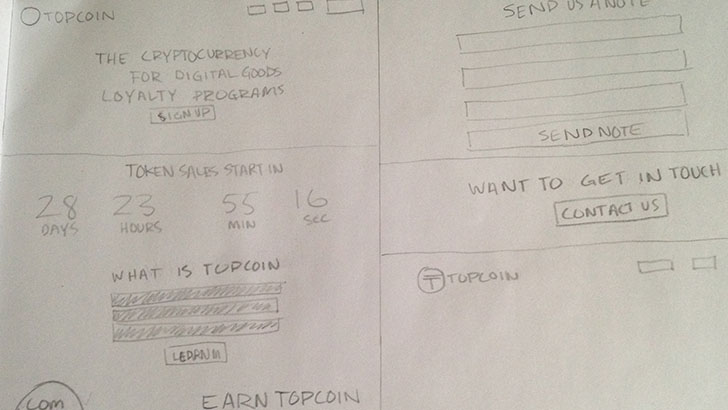 TOPCOIN
THE CRYPTOCURRENCY
FOR DIGITAL GOODS
LOYALTY PROGRAMS
SIGN UP
TOKEN SALES START IN
28 23 55 16
DAYS HOURS MIN SEC
WHAT IS TOPCOIN
EARN TOPCOIN
COM
SEND US A NOTE
SEND NOTE
WANT TO GET IN TOUCH
CONTACT US
T TOPCOIN